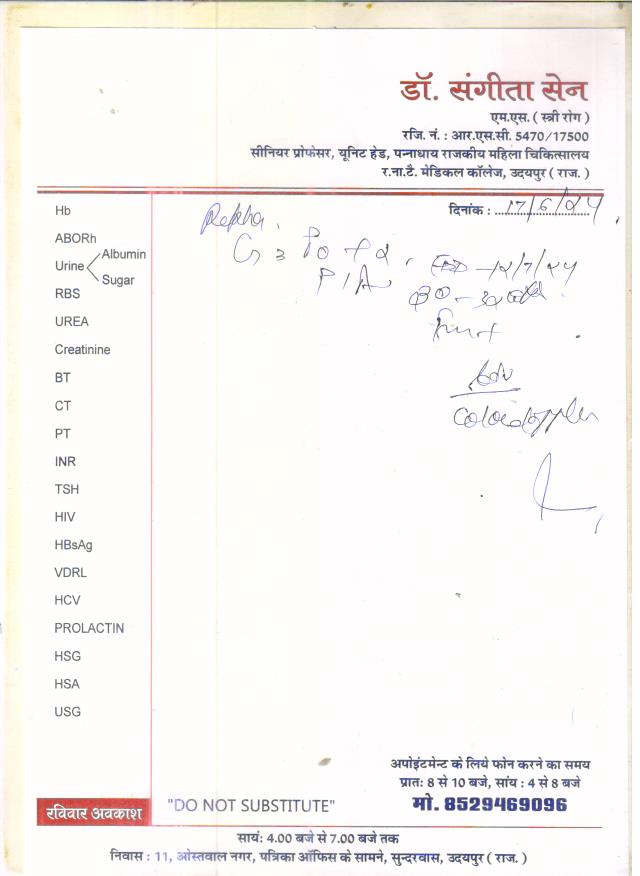 डॉ. संगीता सेन
एम.एस. ( स्त्री रोग )
रजि. नं. : आर.एस.सी. 5470/17500
सीनियर प्रोफेसर, यूनिट हेड, पन्नाधाय राजकीय महिला चिकित्सालय
र.ना.टै. मेडिकल कॉलेज, उदयपुर ( राज. )
दिनांक : 17/6/24
Hb
ABORh
Urine Albumin
Sugar
RBS
UREA
Creatinine
BT
CT
PT
INR
TSH
HIV
HBsAg
VDRL
HCV
PROLACTIN
HSG
HSA
USG
Rekha
P/A
Adv
अपोइंटमेन्ट के लिये फोन करने का समय
प्रातः 8 से 10 बजे, सांय : 4 से 8 बजे
मो. 8529469096
रविवार अवकाश
"DO NOT SUBSTITUTE"
सायं: 4.00 बजे से 7.00 बजे तक
निवास : 11, ओस्तवाल नगर, पत्रिका ऑफिस के सामने, सुन्दरवास, उदयपुर ( राज. )